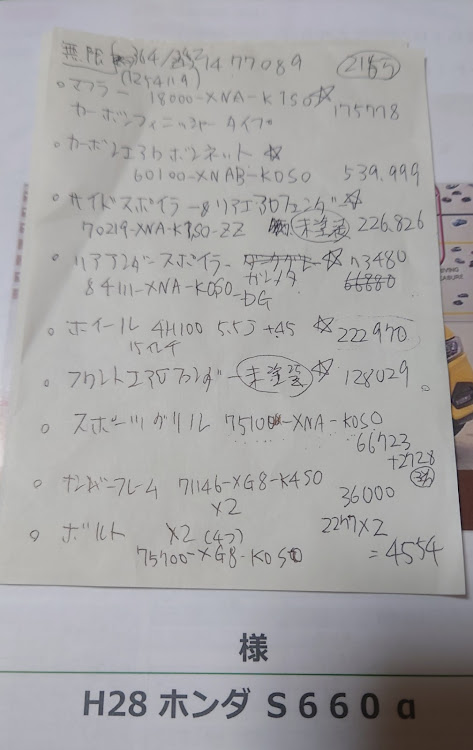 無限 364/
(1254119) 1477089
マフラー 18000-XNA-K1S0 ☆
175778
カーボンフィニッシャータイプ
カーボンエアロボンネット ☆
60100-XNAB-K0S0 539.999
サイドスポイラー&リアエアロフェンダー ☆
70219-XNA-K1S0-ZZ 未塗装 226.826
リアアンダースポイラー ☆ 73480
84111-XNA-K0S0 ガンメタ 66880
-DG
ホイール 4H100 5.5J +45 ☆ 222970
15インチ
フロントエアロフェンダー 未塗装 ☆ 128029
スポーツグリル 75100-XNA-K0S0
66723
+2728
ナンバーフレーム 71146-XG8-K4S0
×2 36000
ボルト ×2 (4つ) 2277×2
75700-XG8-K0S0 =4554
様
H28 ホンダ S660 α